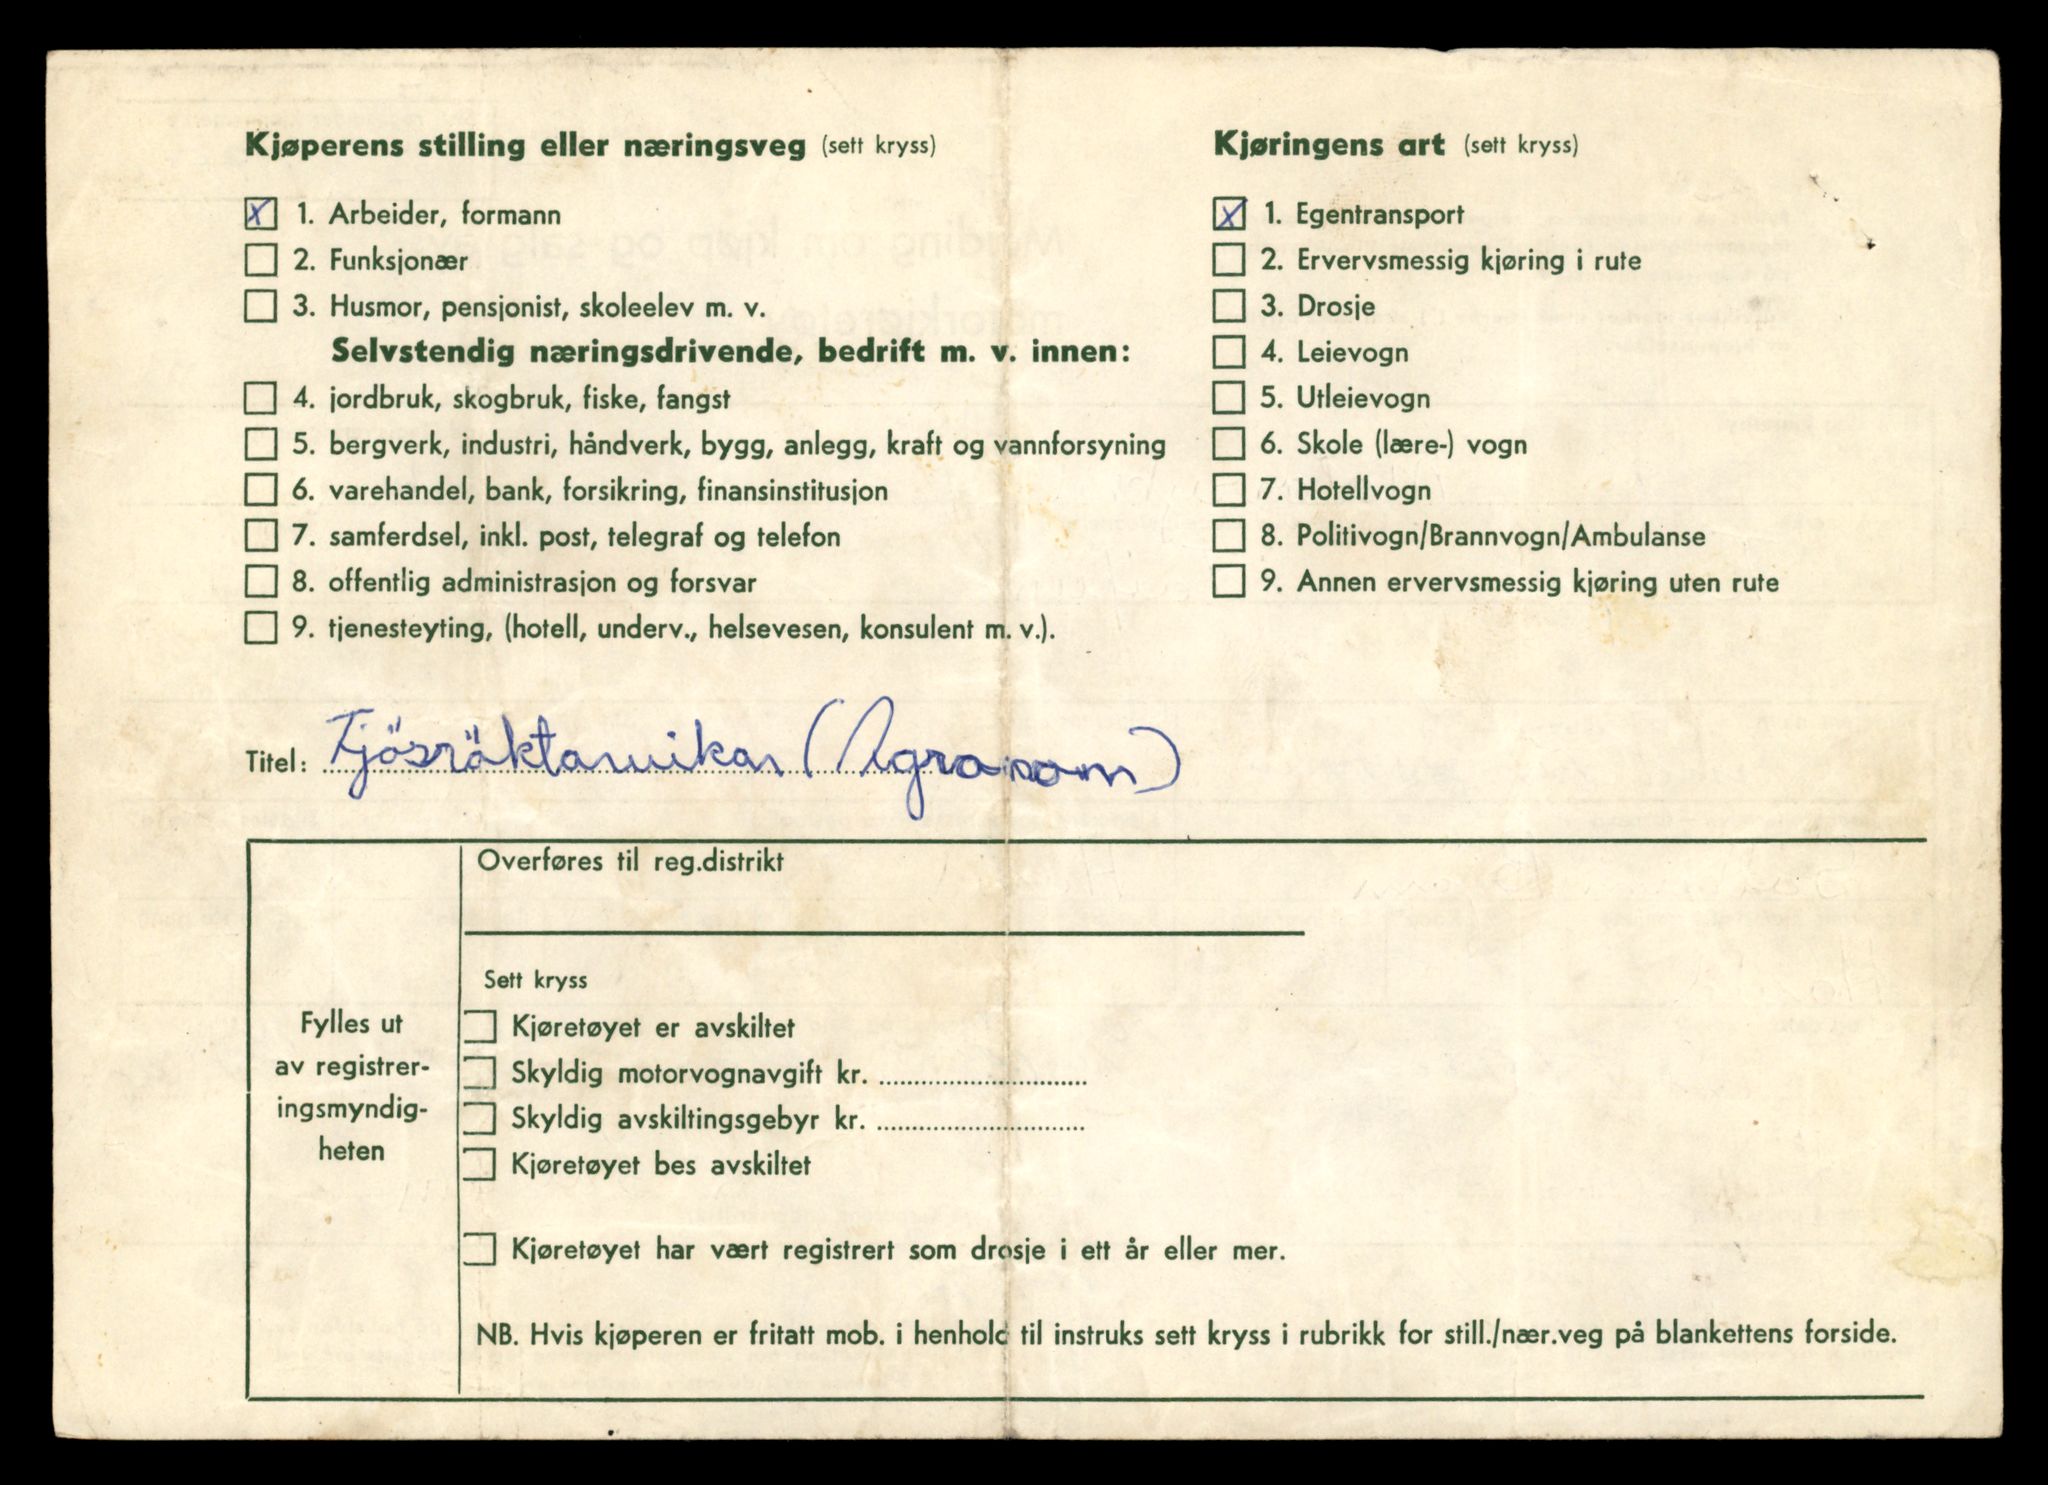 Kjøperens stilling eller næringsveg (sett kryss)
X 1. Arbeider, formann
2. Funksjonær
3. Husmor, pensjonist, skoleelev m. v.
Selvstendig næringsdrivende, bedrift m. v. innen:
4. jordbruk, skogbruk, fiske, fangst
5. bergverk, industri, håndverk, bygg, anlegg, kraft og vannforsyning
6. varehandel, bank, forsikring, finansinstitusjon
7. samferdsel, inkl. post, telegraf og telefon
8. offentlig administrasjon og forsvar
9. tjenesteyting, (hotell, underv., helsevesen, konsulent m. v.).
Kjøringens art (sett kryss)
X 1. Egentransport
2. Ervervsmessig kjøring i rute
3. Drosje
4. Leievogn
5. Utleievogn
6. Skole (lære-) vogn
7. Hotellvogn
8. Politivogn/Brannvogn/Ambulanse
9. Annen ervervsmessig kjøring uten rute
Titel: Fjösröktarvikar (Agronom)
Fylles ut
av registrer-
ingsmyndig-
heten
Overføres til reg.distrikt
Sett kryss
Kjøretøyet er avskiltet
Skyldig motorvognavgift kr.
Skyldig avskiltingsgebyr kr.
Kjøretøyet bes avskiltet
Kjøretøyet har vært registrert som drosje i ett år eller mer.
NB. Hvis kjøperen er fritatt mob. i henhold til instruks sett kryss i rubrikk for still./nær.veg på blankettens forside.